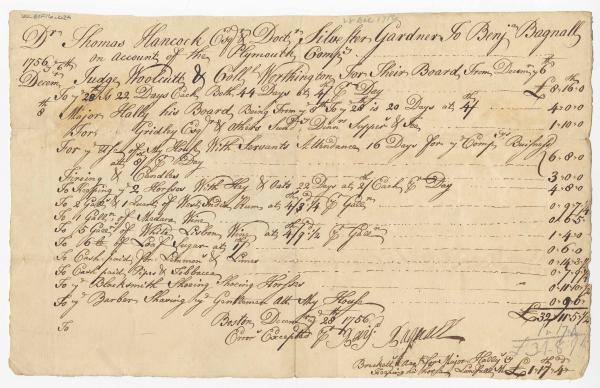 Drs Thomas Hancock Esqr & Doctr Silvester Gardner To Benja Bagnall
on Account of the Plymouth Compy
1756
Decemr 6th Judge Woolcutt & Coll Worthington For Their Board From Decemr 6
To ye 28th is 22 Days Each Both 44 Days at 4/ ⅌ Day £8..16..0
8th Major Hally his Board Being From ye 8th To ye 28 is 20 Days at 4/ 4..0..0
For Gridley Esqr & Others Sundy Dinnrs Suppers & 1..10..0
For ye Use of My House With Servants Attendance 16 Days for ye Compys Buissness
at 8/ ⅌ Day 6..8..0
Fireing & Candles 3..0..0
To Keeping ye 2 Horses With Hay & Oats 22 Days at 2/ Each ⅌ Day 4..8..0
To 2 Galls & 1 Quart of West India Rum at 4/3¼ ⅌ Galln 0..9..7½
To 1 Galln of Madara Wine 0..6..5
To 5 Galls of White Lisbon Wine at 4/9¼ ⅌ Galln 1..4..0
To 6 lb of Loaf Sugar at 1/ 0..6..0
To Cash paid for Lemmons & Limes
To Cash paid Pipes & Tobbacca
To ye Blacksmith Shoeing Horses
To ye Barber Shaving ye Gentlemen Att My House 0..9..6
£32..11..5½
Boston Decemr 28th 1756
Errors Excepted ⅌ Benja Bagnall
To
for Major Hally &
Keeping his Horse £1..17..4